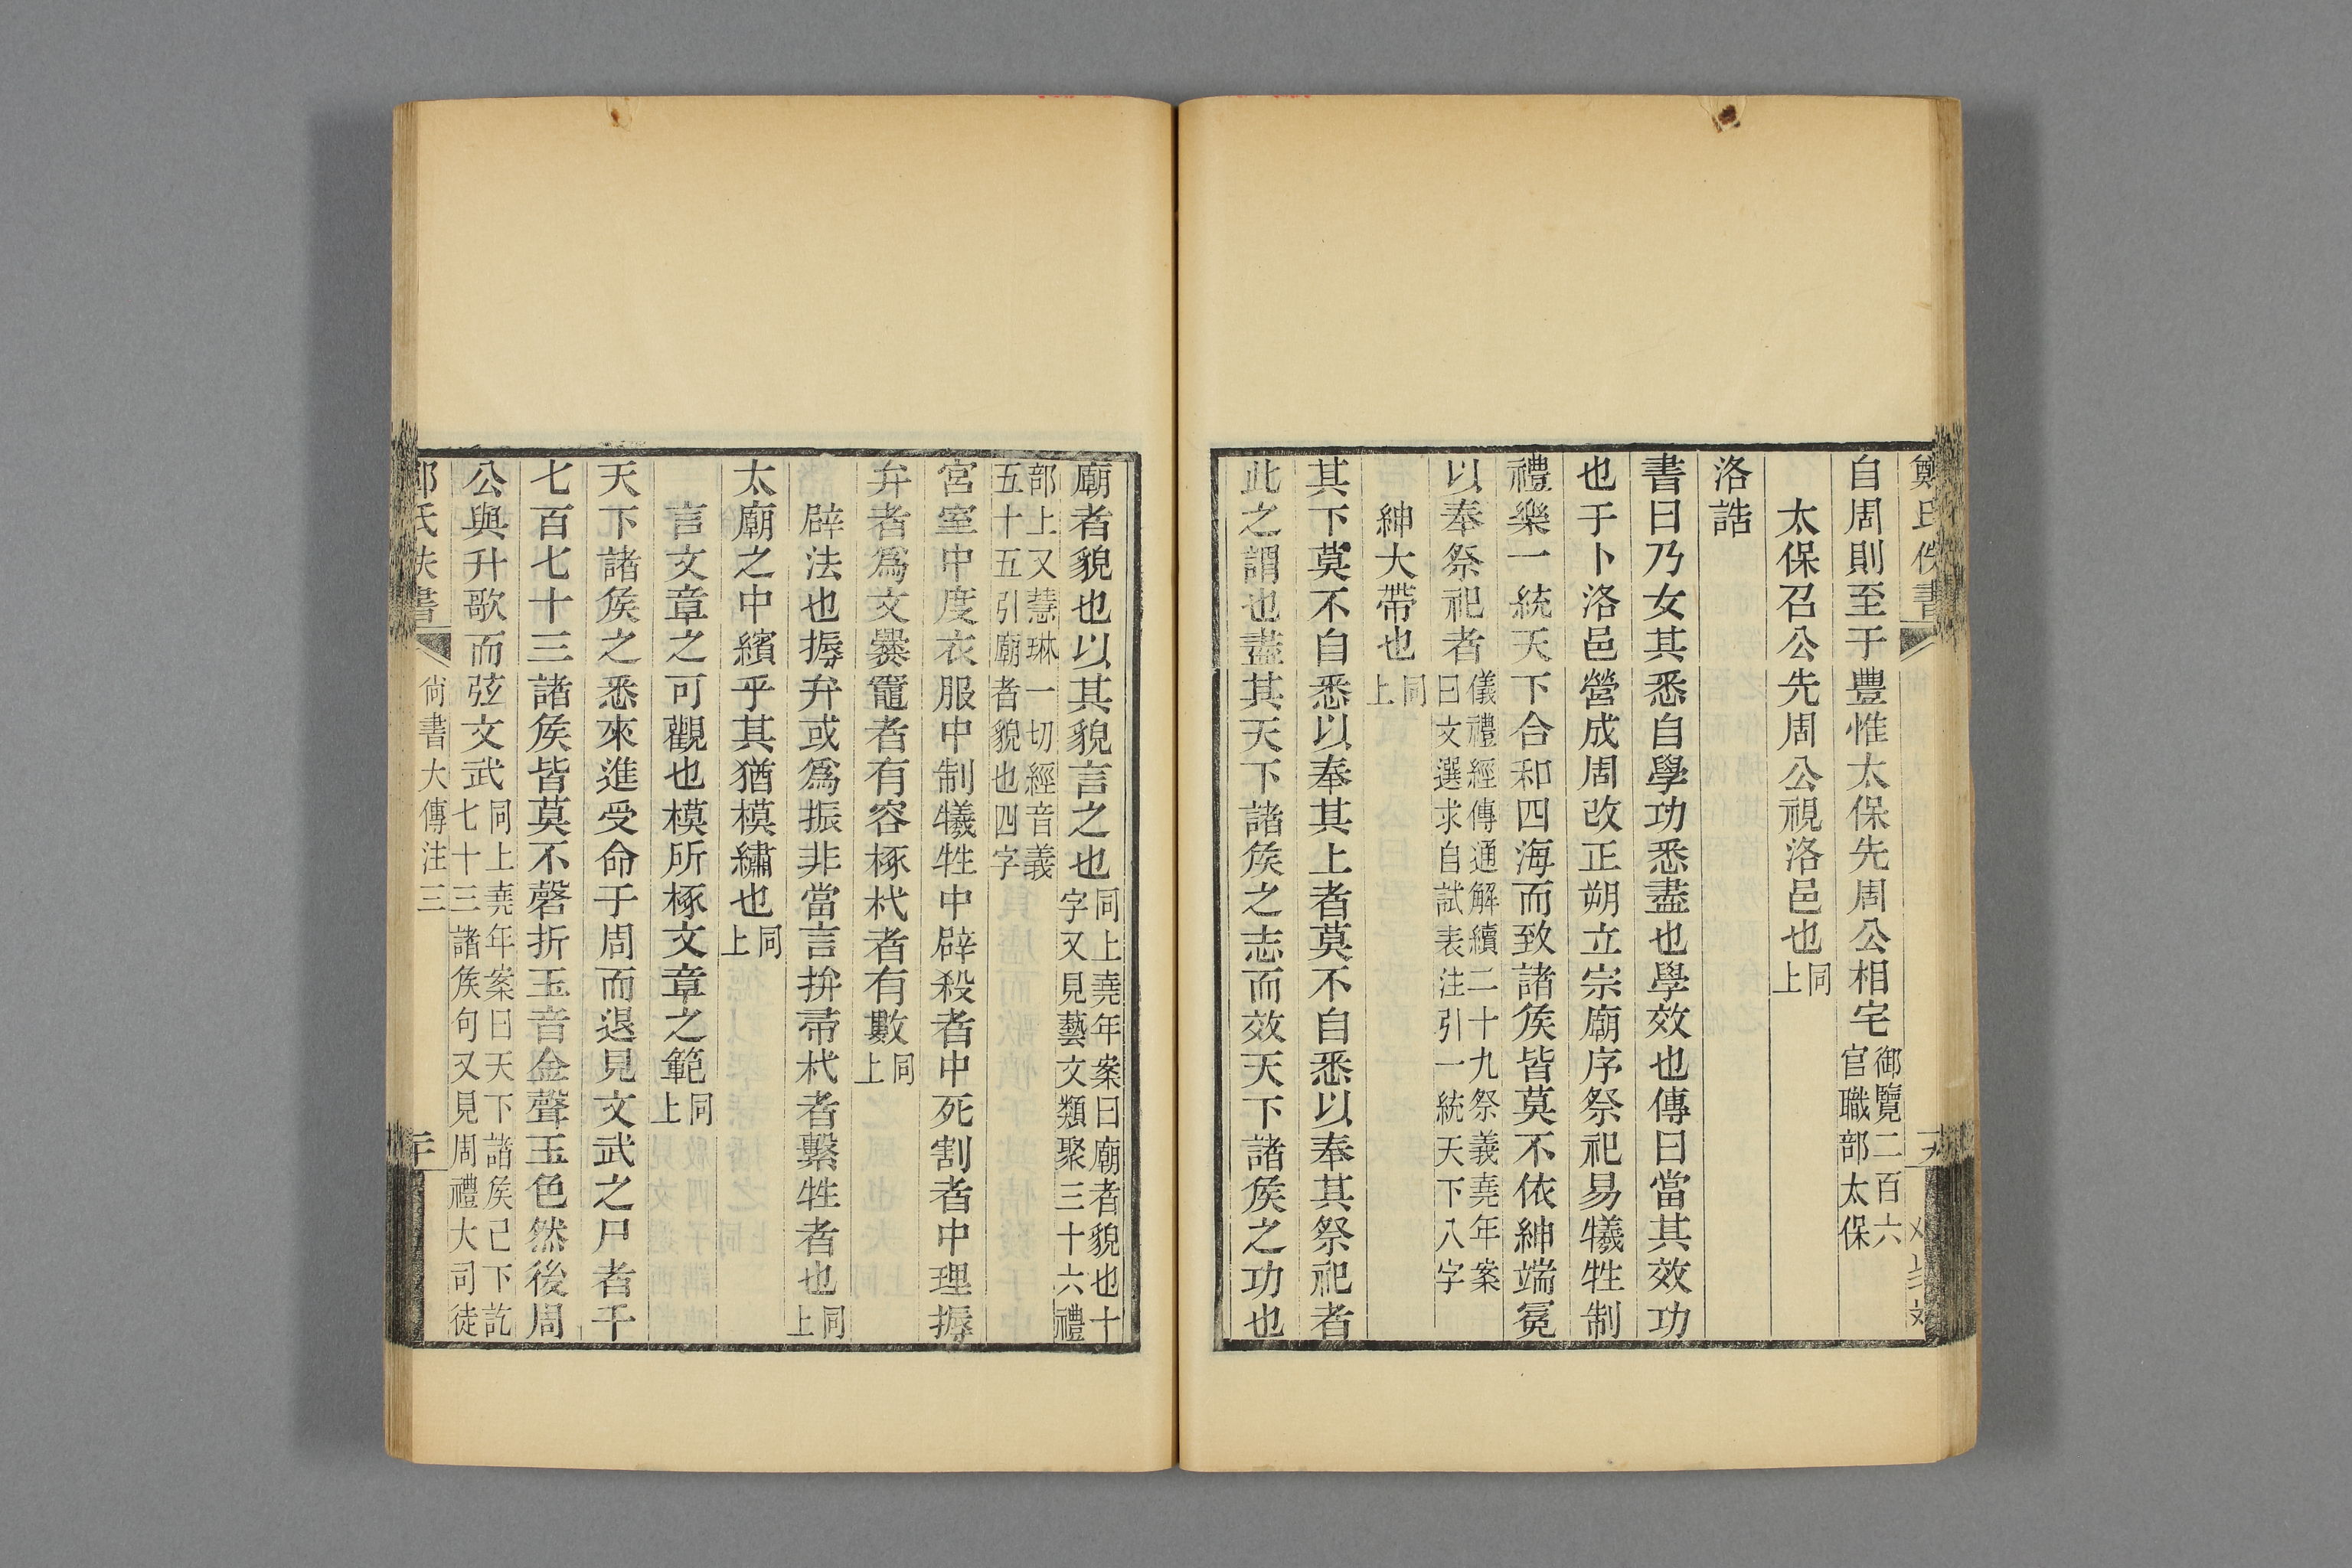 自周則至于豐惟太保先周公相宅御覽二百六官職部太保
太保召公先周公視洛邑也同上
洛誥
書曰乃女其悉自學功悉盡也學效也傳曰當其效功
也于卜洛邑營成周改正朔立宗廟序祭祀易犧牲制
禮樂一統天下合和四海而致諸矦皆莫不依紳端冕
以奉祭祀者儀禮經傳通解續二十九祭義堯年案曰文選求自試表注引一統天下八字
紳大帶也同上
其下莫不自悉以奉其上者莫不自悉以奉其祭祀者
此之謂也盡其天下諸矦之志而效天下諸矦之功也
廟者貌也以其貌言之也同上堯年案曰廟者貌也十字又見藝文類聚三十六禮
部上又慧琳一切經音義五十五引廟者貌也四字
宮室中度衣服中制犧牲中辟殺者中死割者中理搙
弁者爲文爨竈者有容椓杙者有數同上
辟法也搙弁或爲振非當言拚帚杙者繫牲者也同上
太廟之中繽乎其猶模繡也同上
言文章之可觀也模所椓文章之範同上
天下諸矦之悉來進受命于周而退見文武之尸者千
七百七十三諸矦皆莫不磬折玉音金聲玉色然後周
公與升歌而弦文武同上堯年案曰天下諸矦已下訖七十三諸矦句又見周禮大司徒
尙書大傳注三